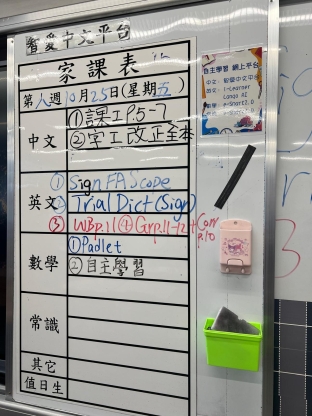 智愛中文平台
家課表
第八週10月25日(星期五)
中文
①課工P.5-7
②字工改正全本
英文
① Sign FA Scope
② Trial Dict (Sign)
③ WB p.11 ④ Grp.11-12 + Corr p.10
數學
①Padlet
②自主學習
常識
其它
值日生
自主學習 網上平台